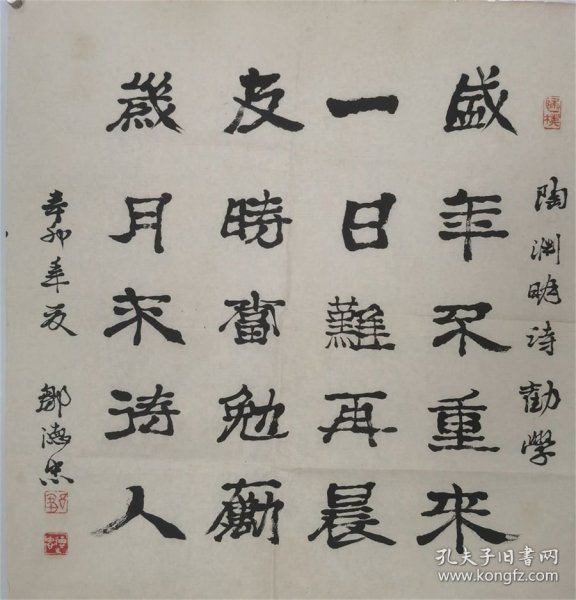 陶渊明诗勸學
盛年不重来
一日難再晨
及時當勉勵
歲月不待人
辛卯年夏 鄒德忠
孔夫子旧书网
www.kongfz.com